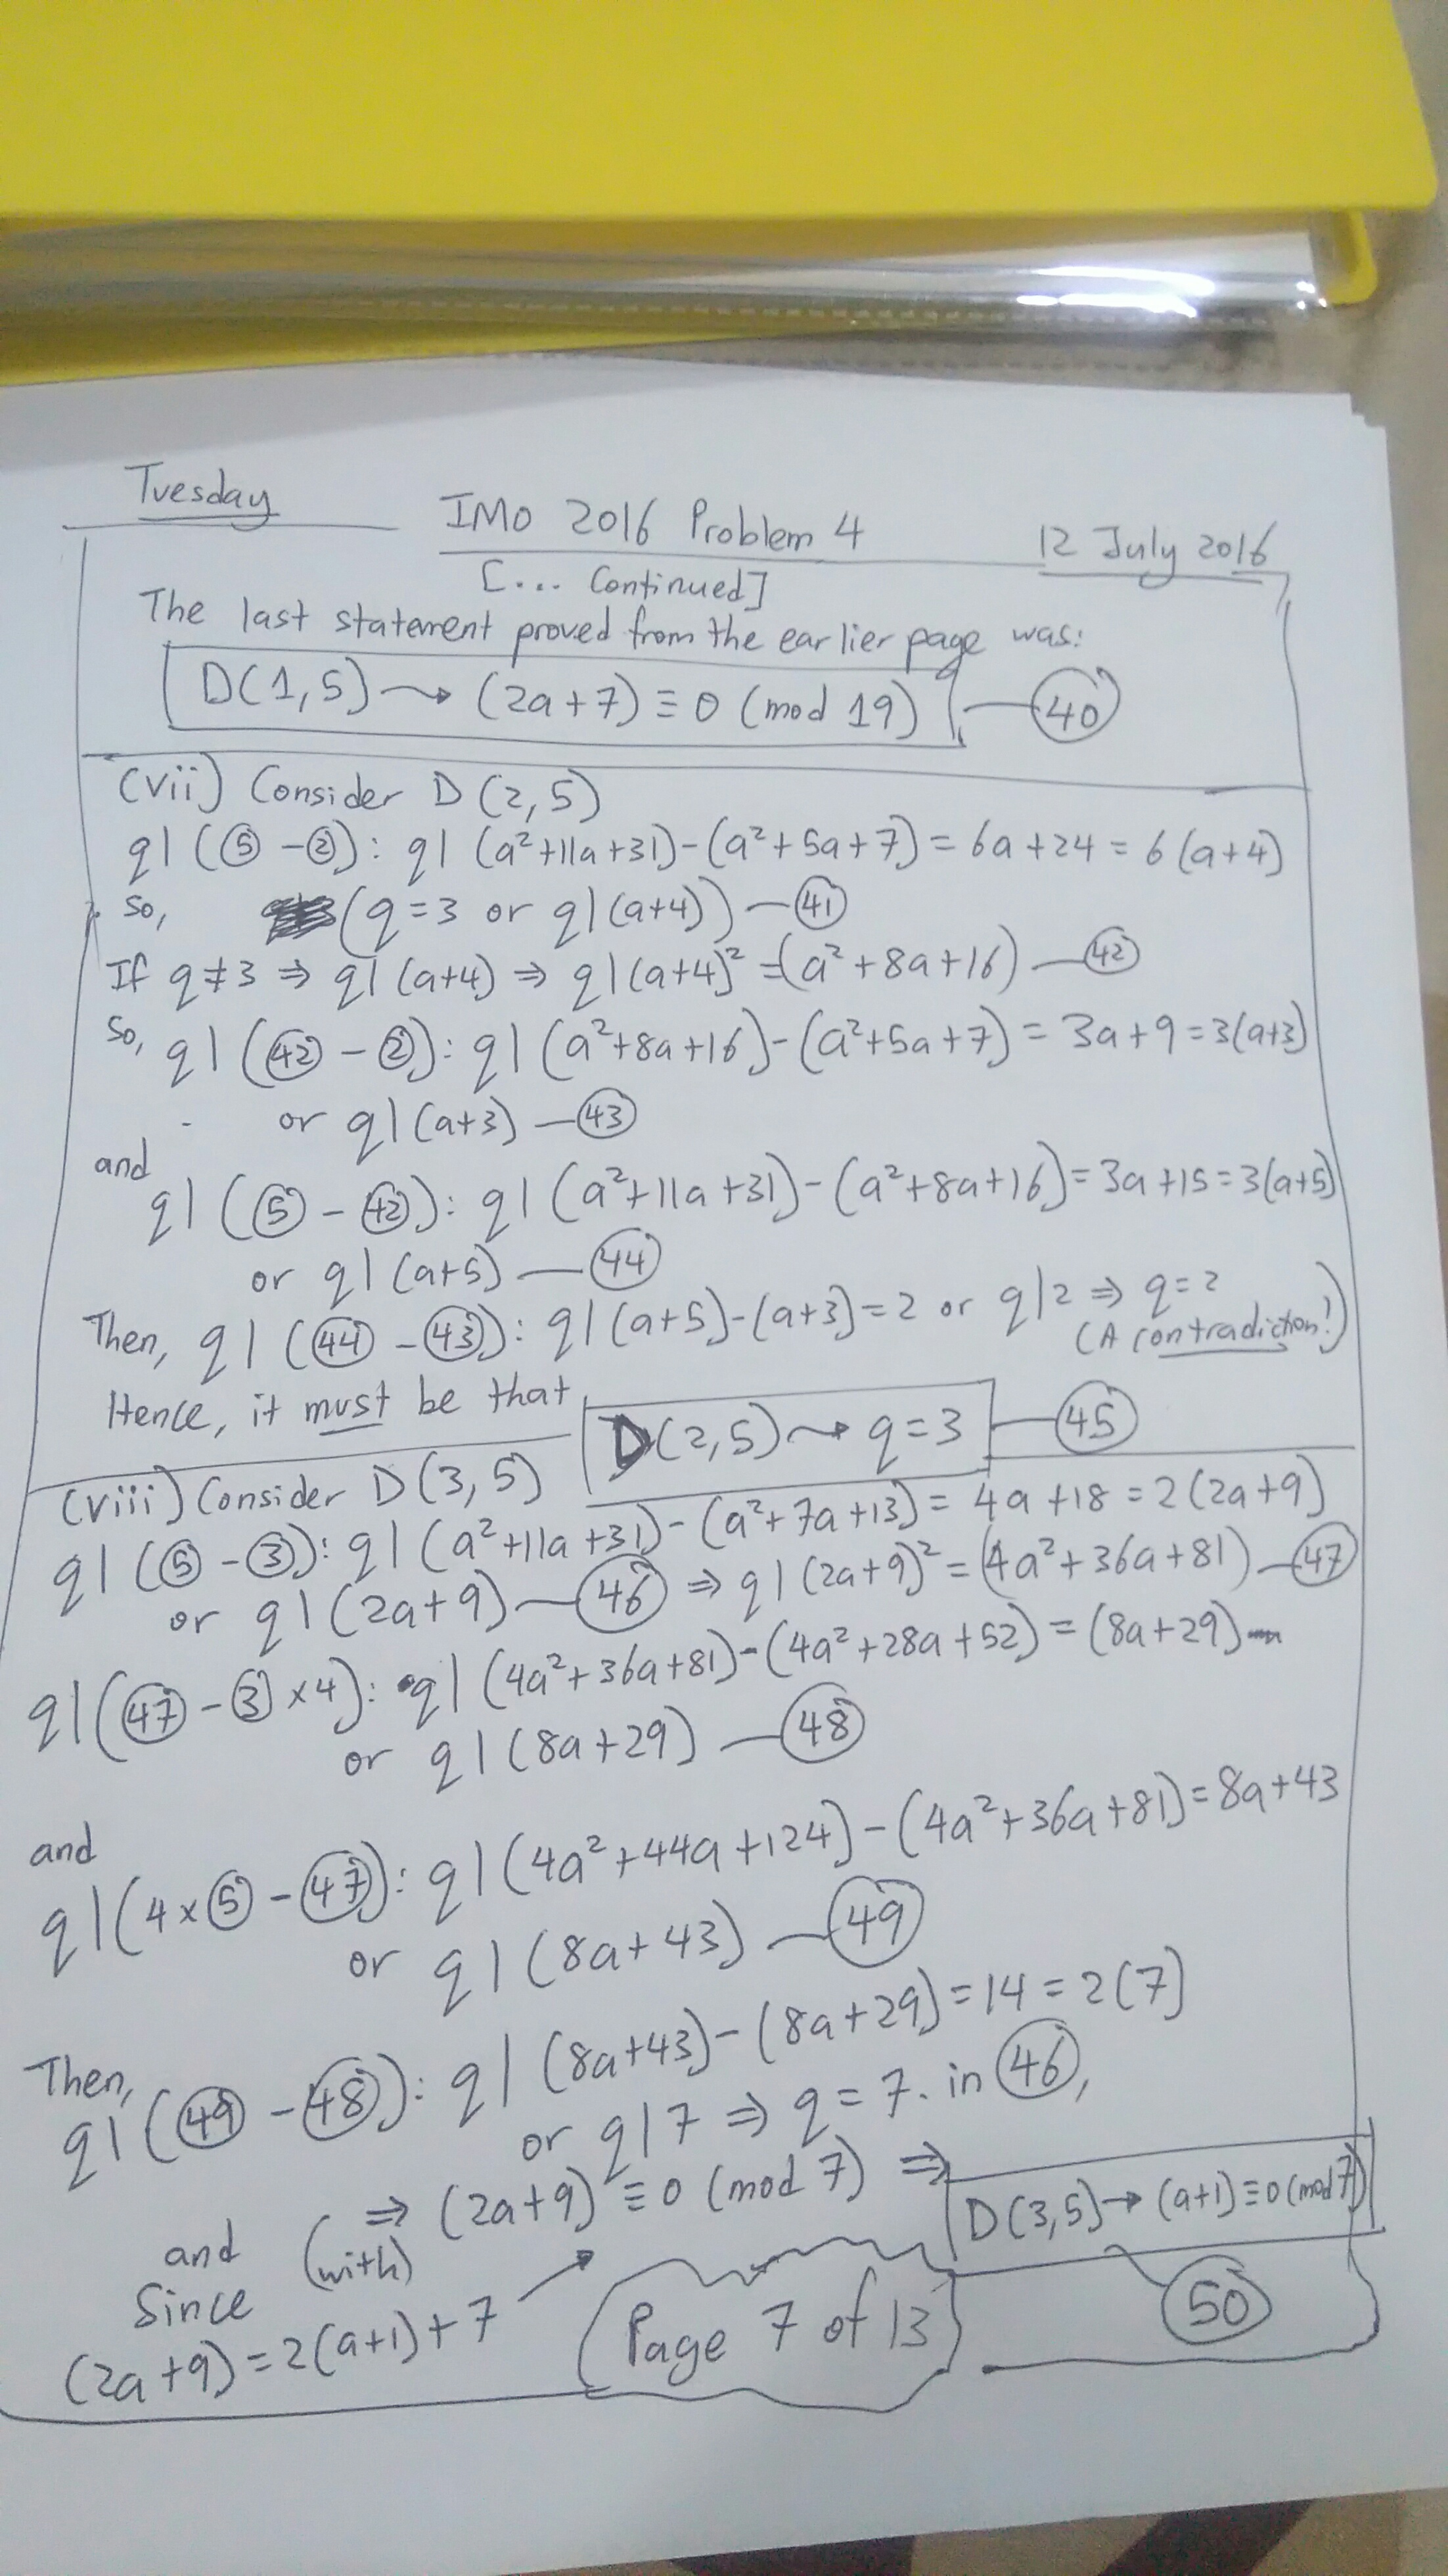 Tuesday
IMO 2016 Problem 4
12 July 2016
[... Continued]
The last statement proved from the earlier page was:
D(1,5) ⇝ (2a+7) ≡ 0 (mod 19) — ㊵
(vii) Consider D(2,5)
q|(⑤-②): q|(a²+11a+31)-(a²+5a+7) = 6a+24 = 6(a+4)
So, (q=3 or q|(a+4)) — ㊶
If q≠3 ⇒ q|(a+4) ⇒ q|(a+4)² = (a²+8a+16) — ㊷
So, q|(㊷-②): q|(a²+8a+16)-(a²+5a+7) = 3a+9 = 3(a+3)
or q|(a+3) — ㊸
and
q|(⑤-㊷): q|(a²+11a+31)-(a²+8a+16) = 3a+15 = 3(a+5)
or q|(a+5) — ㊹
Then, q|(㊹-㊸): q|(a+5)-(a+3) = 2 or q|2 ⇒ q=2
(A contradiction!)
Hence, it must be that D(2,5) ⇝ q=3 — ㊺
(viii) Consider D(3,5)
q|(⑤-③): q|(a²+11a+31)-(a²+7a+13) = 4a+18 = 2(2a+9)
or q|(2a+9) — ㊻ ⇒ q|(2a+9)² = (4a²+36a+81) — ㊼
q|(㊼-③×4): q|(4a²+36a+81)-(4a²+28a+52) = (8a+29)
or q|(8a+29) — ㊽
and
q|(4×⑤-㊼): q|(4a²+44a+124)-(4a²+36a+81) = 8a+43
or q|(8a+43) — ㊾
Then,
q|(㊾-㊽): q|(8a+43)-(8a+29) = 14 = 2(7)
or q|7 ⇒ q=7. in ㊻,
⇒ (2a+9) ≡ 0 (mod 7) ⇒ D(3,5) → (a+1) ≡ 0 (mod 7)
and (with)
Since
(2a+9) = 2(a+1)+7
㊿
Page 7 of 13